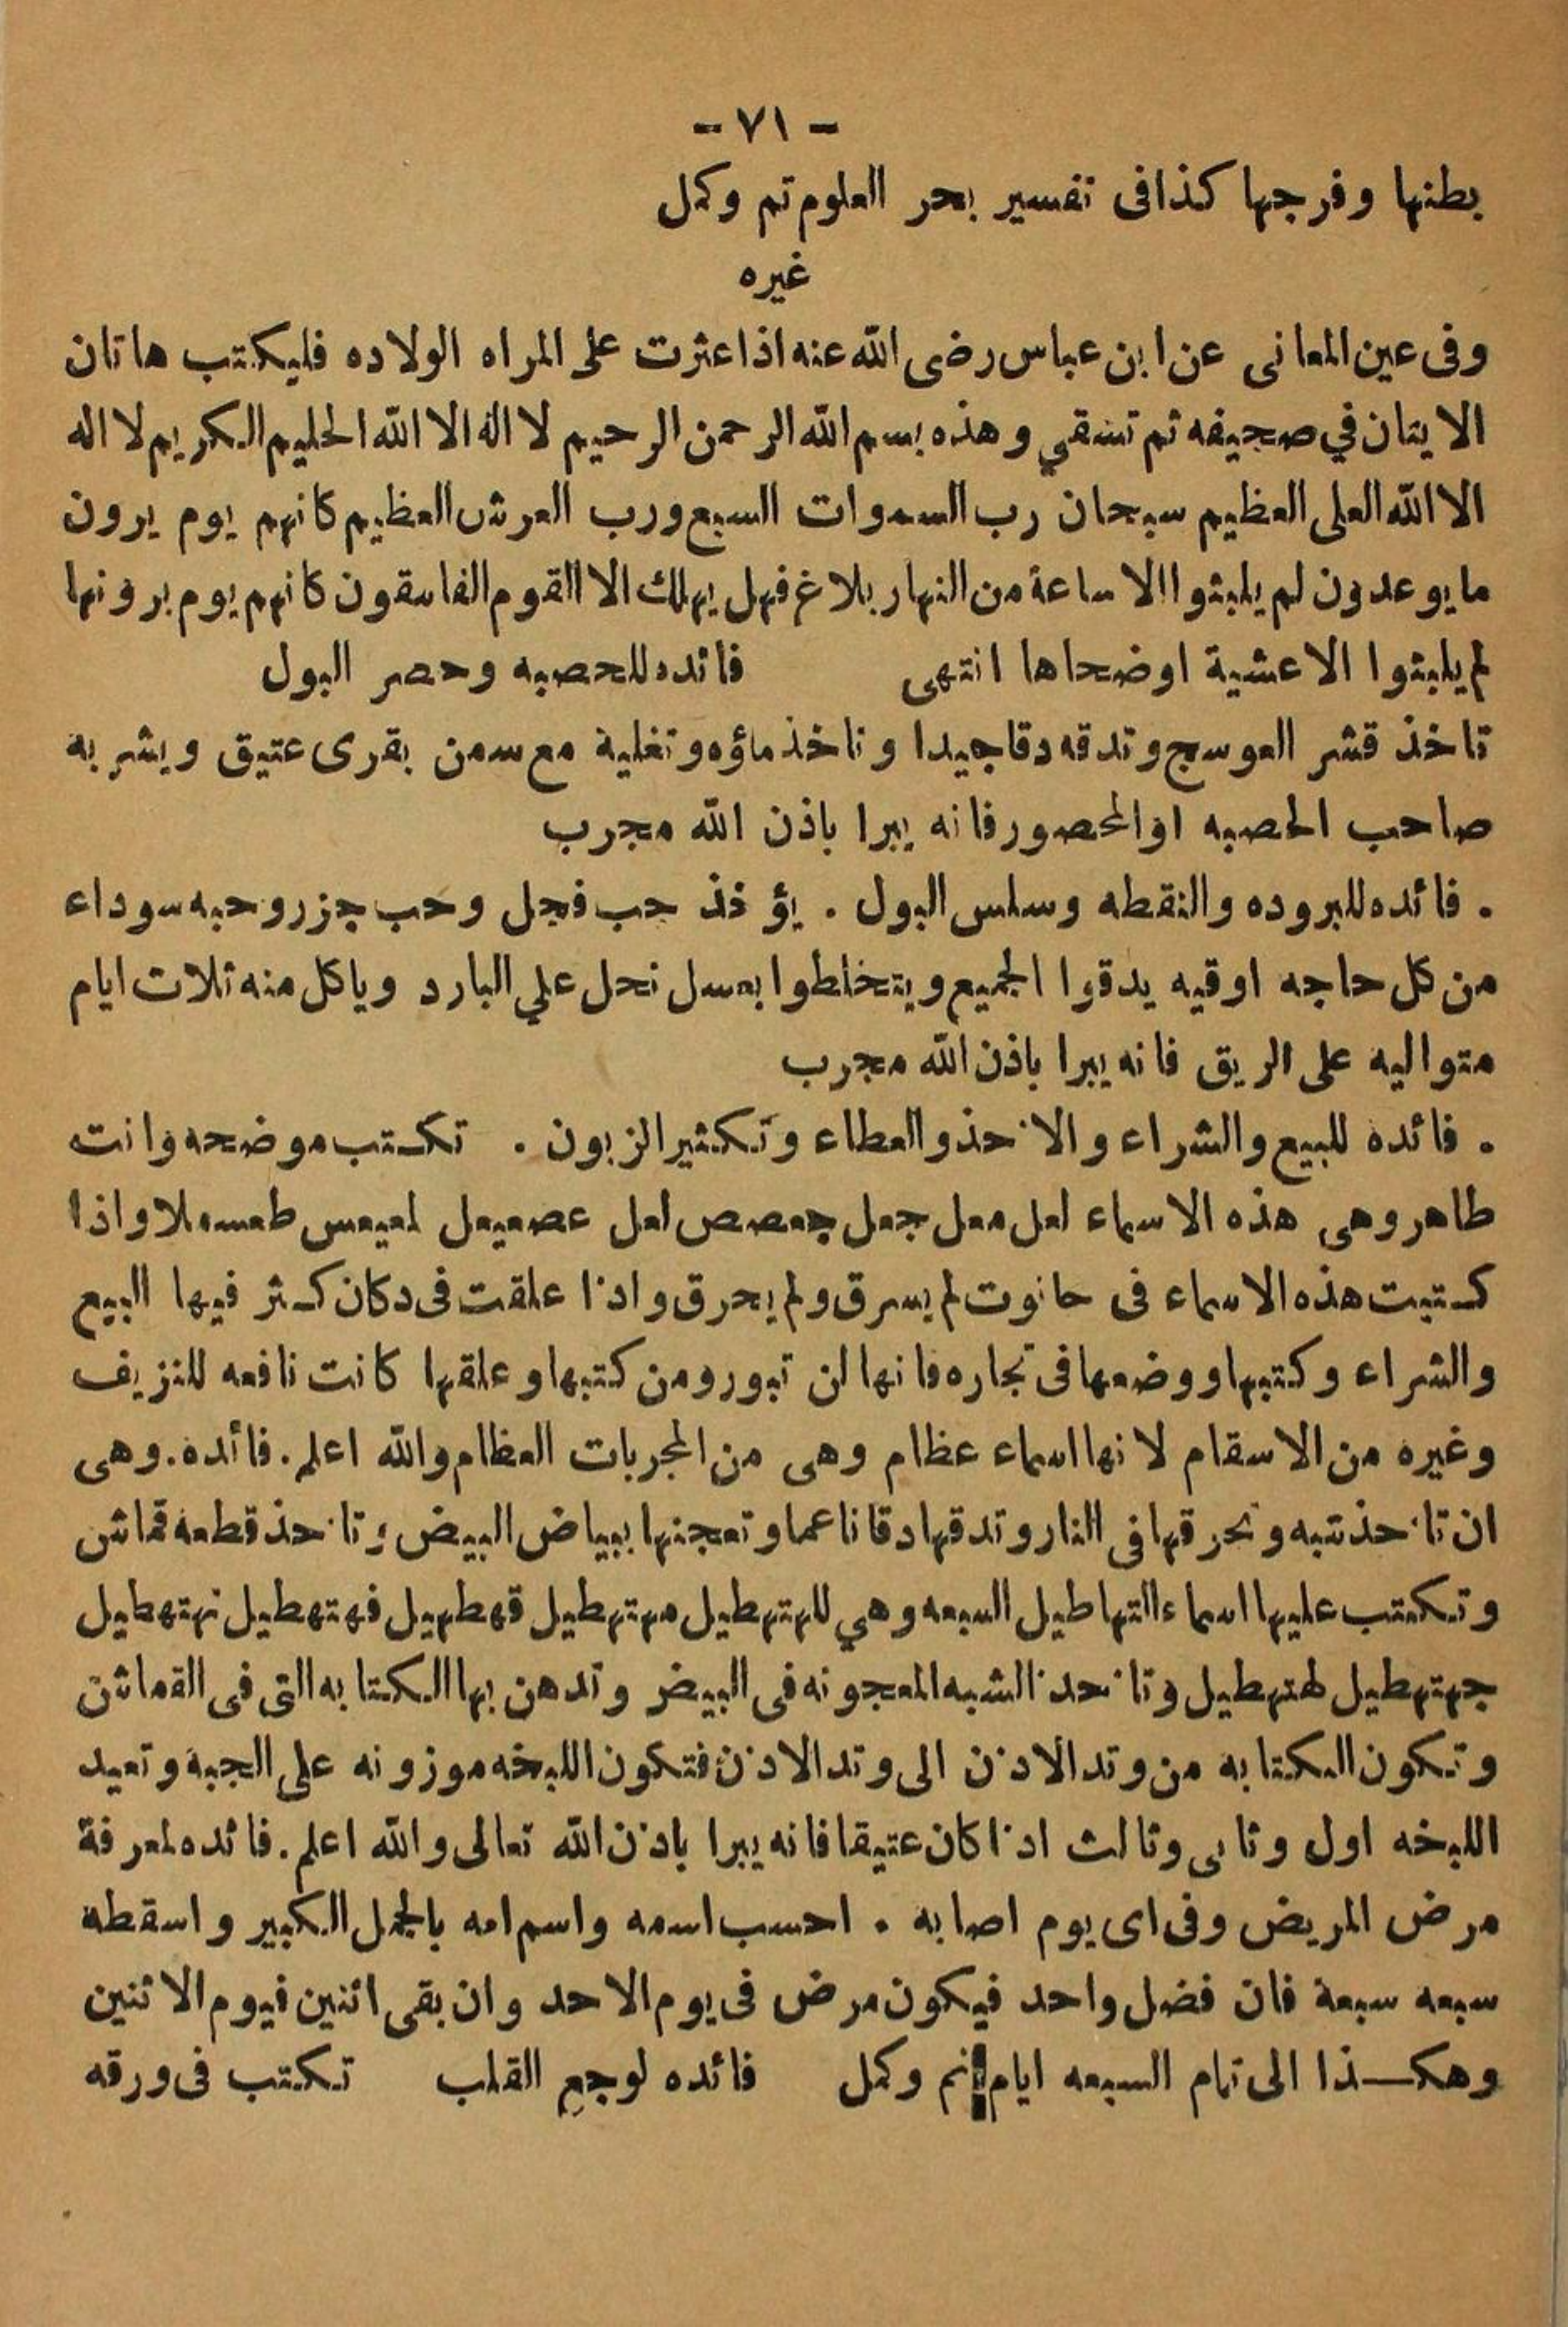 - ٧١ -
بطنها وفرجها كذافى تفسير بحر العلوم تم وكمل
غيره
وفى عين المعانى عن ابن عباس رضى الله عنه اذا عثرت على المراه الولاده فليكتب هاتان
الايتان في صحيفه ثم تسقي وهذه بسم الله الرحمن الرحيم لا اله الا الله الحليم الكريم لا اله
الا الله العلى العظيم سبحان رب السموات السبع ورب العرش العظيم كانهم يوم يرون
ما يوعدون لم يلبثوا الا ساعة من النهار بلاغ فهل يهلك الا القوم الفاسقون كانهم يوم يرونها
لم يلبثوا الا عشية اوضحاها انتهى فائده للحصبه وحصر البول
تاخذ قشر العوسج وتدقه دقاجيدا وتاخذ ماؤه وتغلية مع سمن بقرى عتيق ويشربه
صاحب الحصبه اوالمحصور فانه يبرا باذن الله مجرب
. فائده للبروده والنقطه وسلس البول . يؤخذ حب فجل وحب جزر وحبه سوداء
من كل حاجه اوقيه يدقوا الجميع ويتخلطوا بعسل نحل علي البارد وياكل منه ثلاث ايام
متواليه على الريق فانه يبرا باذن الله مجرب
. فائده للبيع والشراء والاخذ والعطاء وتكثير الزبون . تكتب موضحه وانت
طاهر وهى هذه الاسماء لعل معل جعل جعصص لعل عصعيعل لعيعس طعسه ملا واذا
كتبت هذه الاسماء فى حانوت لم يسرق ولم يحرق واذا علقت فى دكان كثر فيها البيع
والشراء وكتبها ووضعها فى تجاره فانها لن تبور ومن كتبها وعلقها كانت نافعه للنزيف
وغيره من الاسقام لانها اسماء عظام وهى من المجربات العظام والله اعلم . فائده . وهى
ان تاخذ شبه وتحرقها فى النار وتدقها دقا ناعما وتعجنها ببياض البيض وتاخذ قطعه قماش
وتكتب عليها اسماء التهاطيل السبعه وهي للهتهطيل مهتهطيل قهطهيل فهتهطيل نهتهطيل
جهتهطيل لهتهطيل وتاخذ الشبه المعجونه فى البيض وتدهن بها الكتابه التى فى القماش
وتكون الكتابه من وتد الاذن الى وتد الاذن فتكون اللبخه موزونه على الجبهة وتعيد
اللبخه اول وثانى وثالث اذا كان عتيقا فانه يبرا باذن الله تعالى والله اعلم . فائده لمعرفة
مرض المريض وفى اى يوم اصابه . احسب اسمه واسم امه بالجمل الكبير واسقطه
سبعه سبعة فان فضل واحد فيكون مرض فى يوم الاحد وان بقى اثنين فيوم الاثنين
وهكذا الى تمام السبعه ايام تم وكمل فائده لوجع القلب تكتب فى ورقه